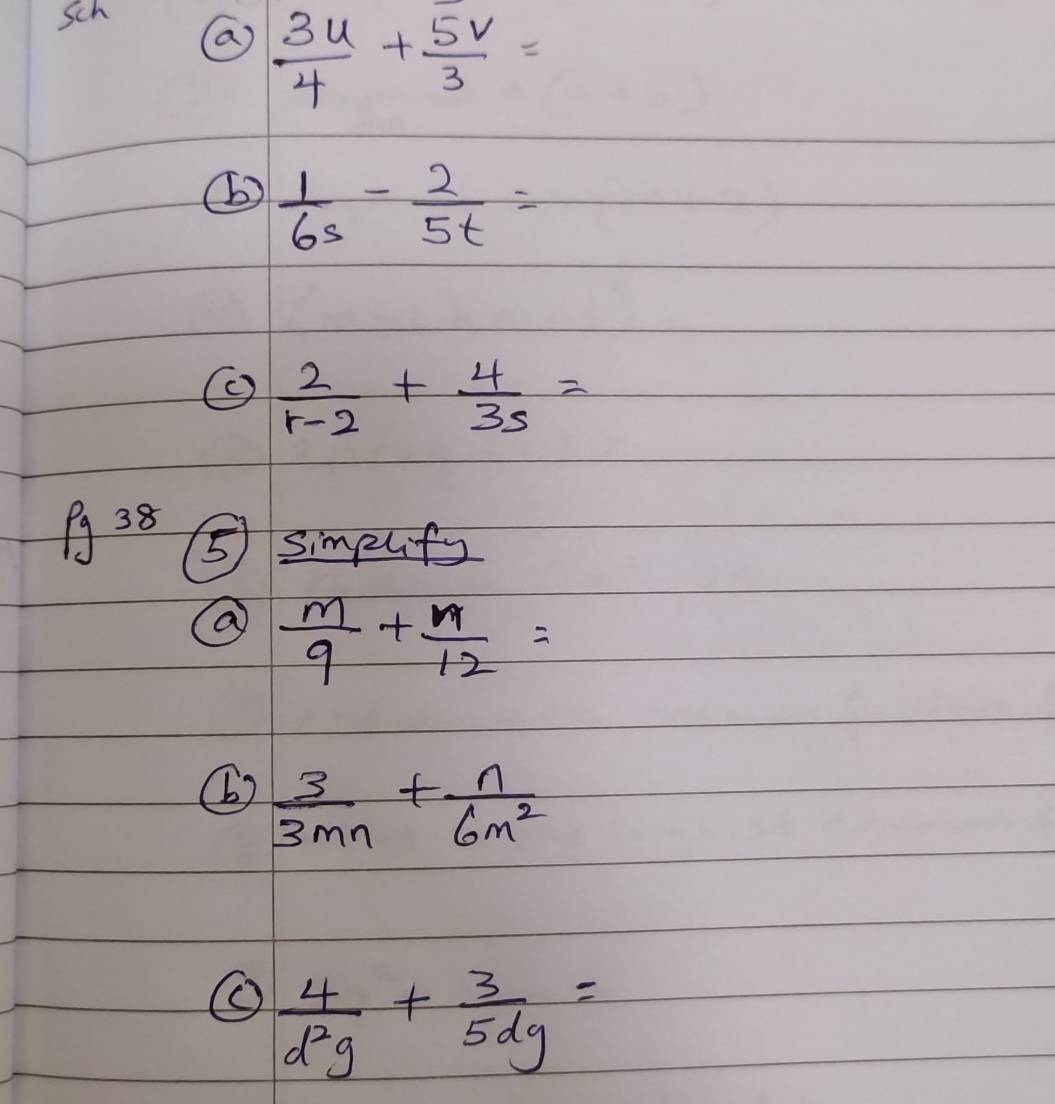 sch
ⓐ 3u/4 + 5v/3 =
ⓑ 1/6s - 2/5t =
ⓒ 2/r-2 + 4/3s =
Pg 38 ⑤ Simplify
ⓐ m/9 + n/12 =
ⓑ 3/3mn + n/6m²
ⓒ 4/d²g + 3/5dg =